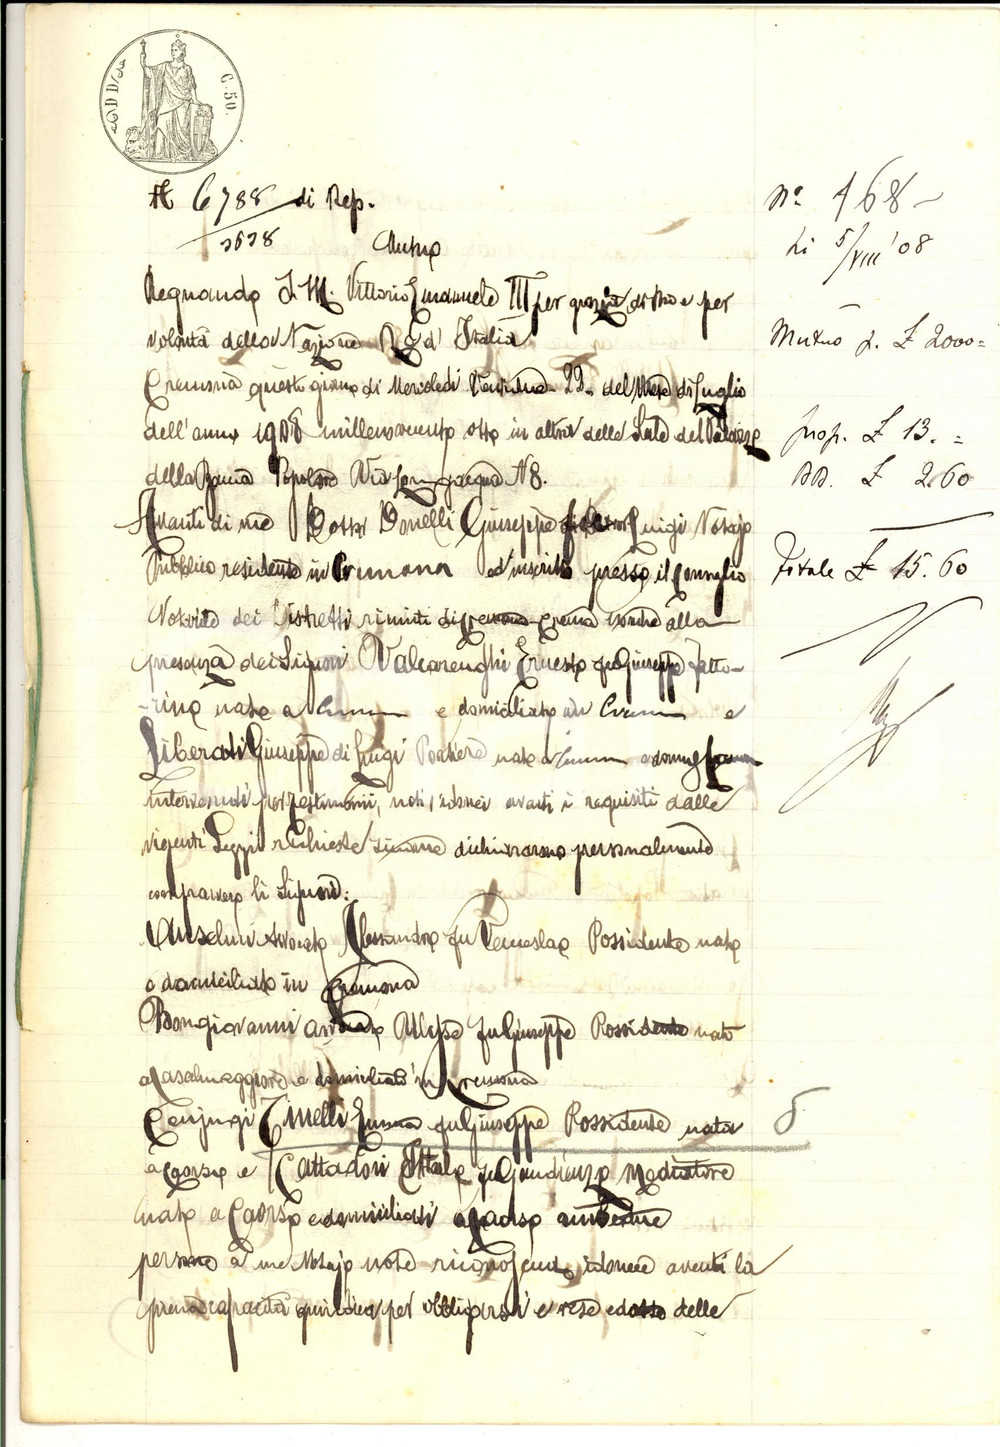 C. 50.
N 6788 di Rep.
2628
Mutuo
Regnando S. M. Vittorio Emanuele III per grazia di Dio e per
volontà della Nazione Re d' Italia
Cremona questo giorno di Mercoledì Ventidue 22 del Mese di Luglio
dell'anno 1908 millenovecento otto in altra delle Sale del Palazzo
della Banca Popolare Via N 8.
Avanti di me Dottor Donelli Giuseppe Luigi Notajo
Pubblico residente in Cremona ed inscritto presso il Consiglio
Notarile dei Distretti riuniti di Cremona Crema nonché alla
presenza dei Signori Valcarenghi Ernesto fu Giuseppe fatto-
-rino nato a Cremona e domiciliato in Cremona e
Liberati Giuseppe di Luigi Portiere nato a Cremona e domic.
intervenuti per testimoni, noti, idonei aventi i requisiti dalle
vigenti Leggi richieste dichiararono personalmente
comparvero li Signori:
Anselmi Avvocato Alessandro fu Possidente nato
e domiciliato in Cremona
Bongiovanni Ulisse fu Giuseppe Possidente nato
a Casalmaggiore e domiciliato in Cremona
Conjugi Tinelli Emma fu Giuseppe Possidente nata
a Caorso e Cattadori Italo fu Gaudenzio Mediatore
nato a Caorso e domiciliati a Caorso
persone a me Notajo note idonee aventi la
piena capacità giuridica per obbligarsi e rese edotte delle
N° 468
Li 5/VIII '08
Mutuo p. £ 2000=
prop. £ 13. =
£ 2.60
Totale £ 15.60